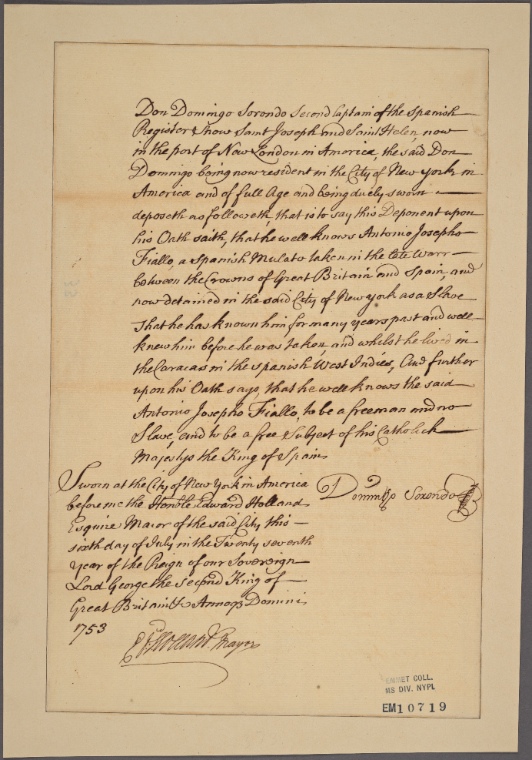 Don Domingo Sorondo Second Captain of the Spanish
Register Snow Saint Joseph and Saint Helen, now
in the port of New London in America, the said Don
Domingo being now resident in the City of New york in
America and of full Age and being duely sworn
deposeth as followeth, that is to say this Deponent upon
his Oath saith, that he well knows Antonio Josepho
Fiallo, a Spanish Mulato taken in the late Warr
between the Crowns of Great Britain and Spain, and
now detained in the said City of New york as a Slave
That he has known him for many years past and well
knew him before he was taken, and whilst he lived in
the Caracas in the Spanish West Indies, And further
upon his Oath says, that he well knows the said
Antonio Josepho Fiallo, to be a freeman and no
Slave, and to be a free Subject of his Catholick
Majestys the King of Spain
Sworn at the City of New York in America
before me the Honble Edward Holland
Esquire Maior of the said City this
sixth day of July in the Twenty seventh
year of the Reign of our Sovereign
Lord George the Second King of
Great Britain &c Annoqs Domini
1753
Domingo Sorondo
Edwd Holland Mayor
EMMET COLL.
MS DIV. NYPL
EM10719